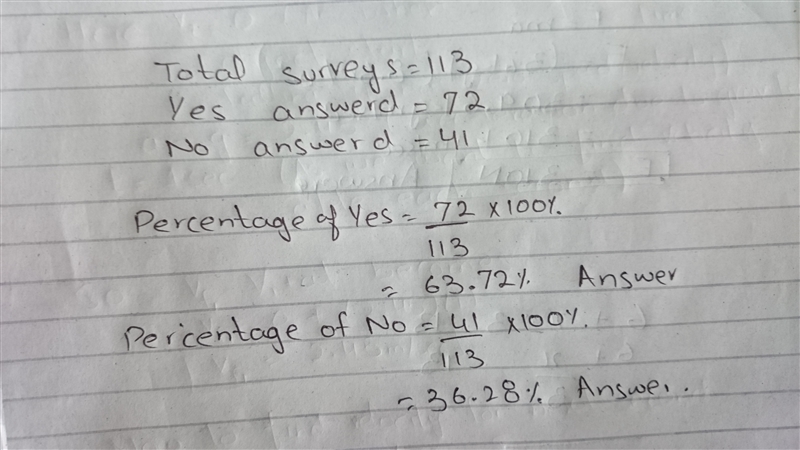 Total surveys = 113
Yes answerd = 72
No answerd = 41
Percentage of Yes = 72/113 × 100%.
= 63.72%. Answer
Percentage of No = 41/113 × 100%.
= 36.28%. Answer.